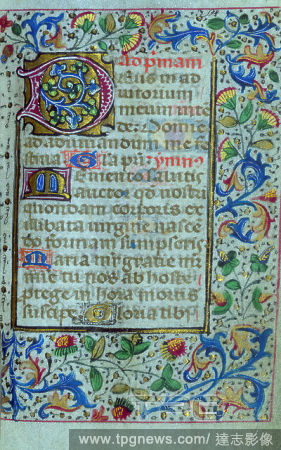 Ad primam
Deus in ad
iutorium
meum inte
de: Domine
ad adiuuandum me fe
stina Gla pri ymnus
Memento salutis
auctor qd nostri
quondam corporis ex
illibata virgine nasce
do formam sumpseris
Maria mr gratie mr
mie tu nos ab hoste
ptege in hora mortis
suscipe Gloria tibi
www.tpgnews.com/ 達志影像